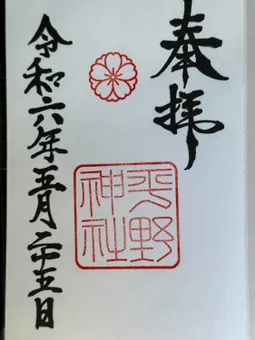 奉拝
平野
神社
令和六年五月二十五日